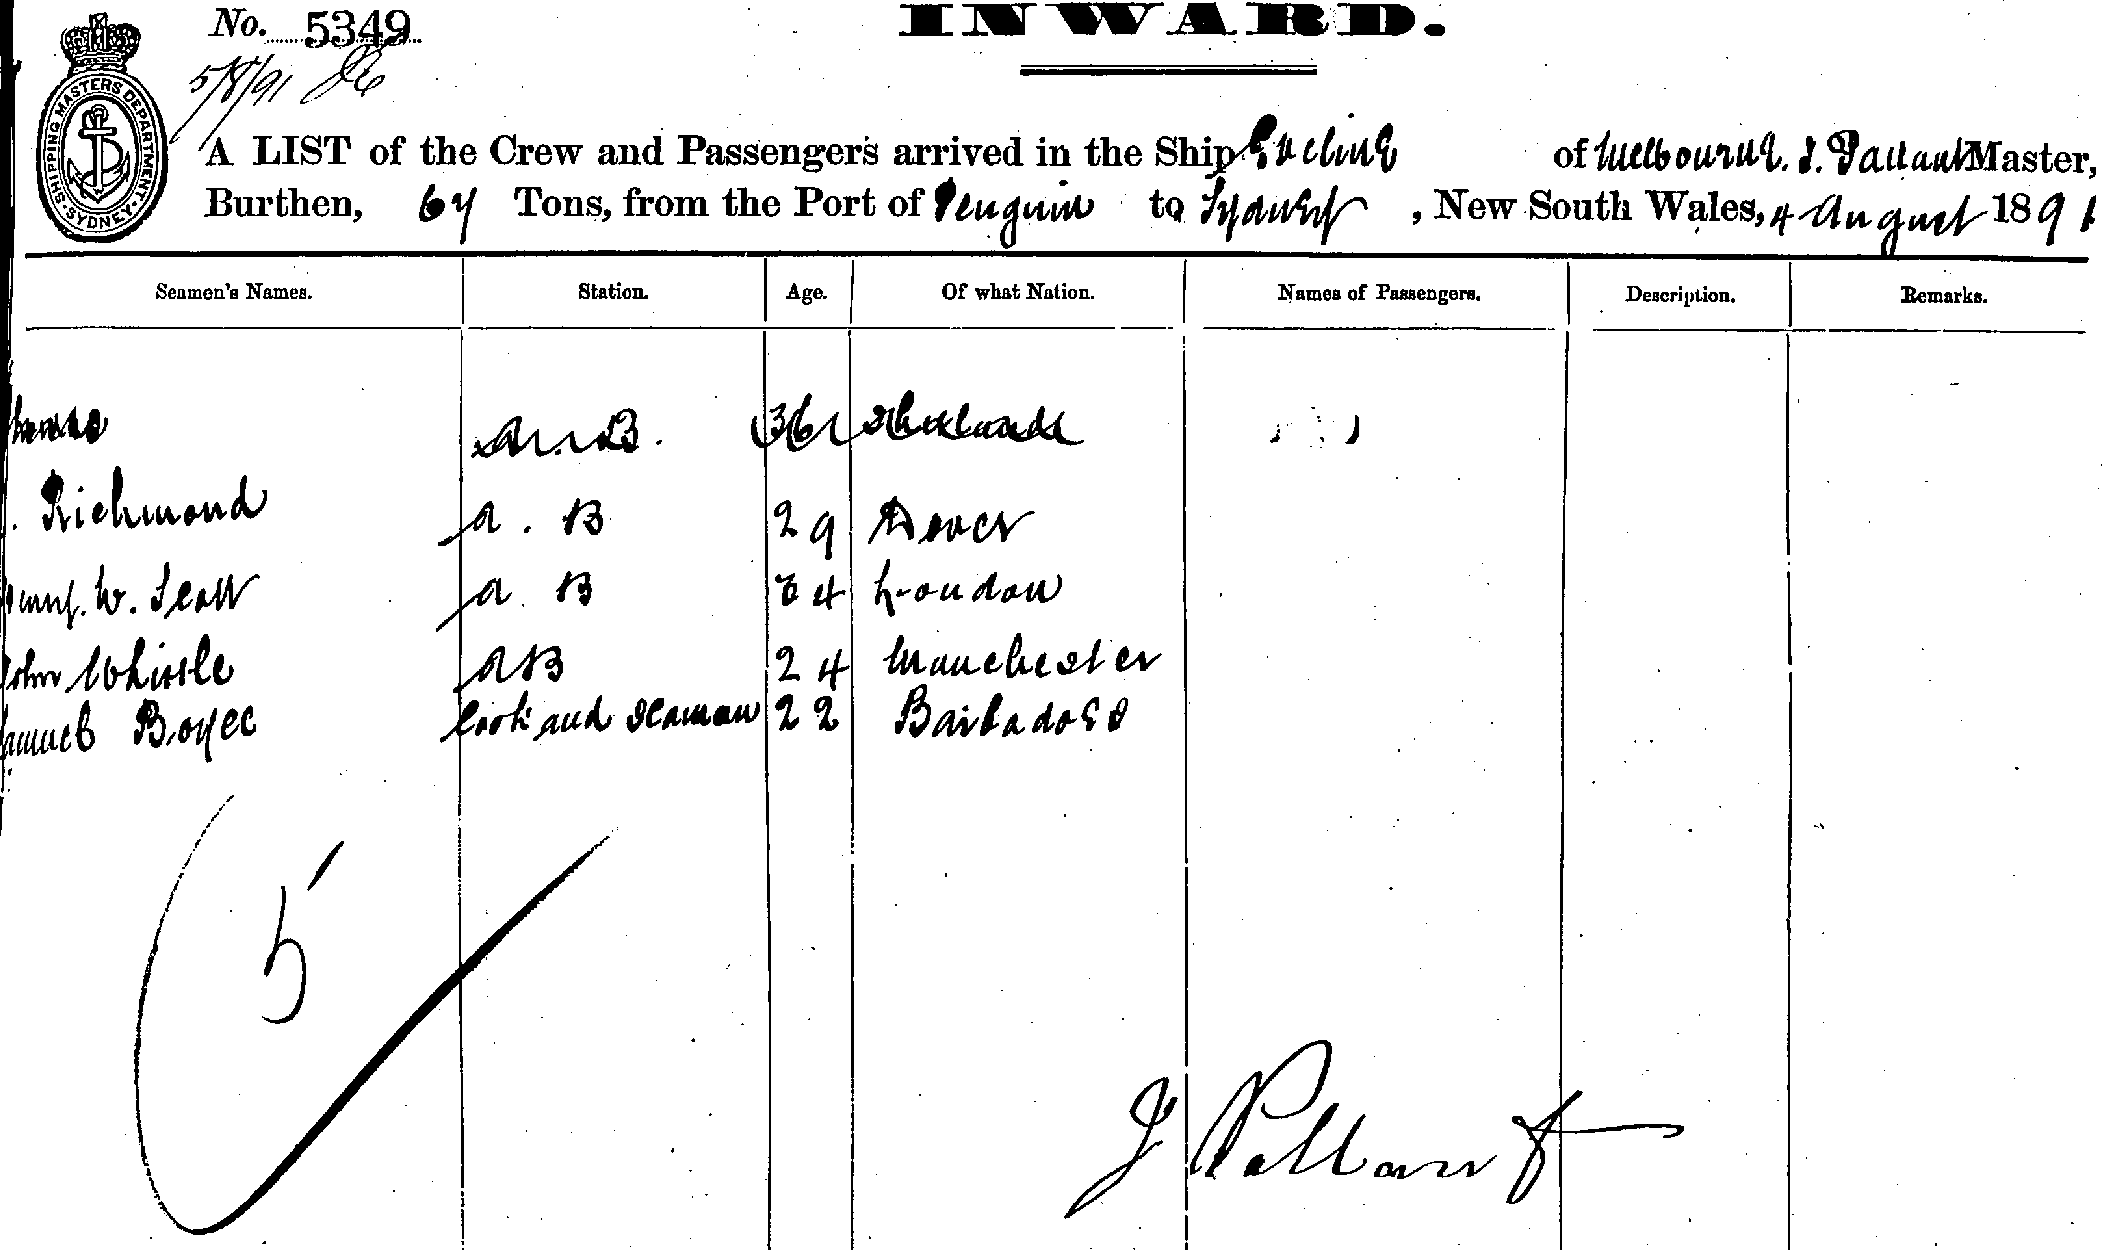 No. 5349
INWARD.
5/8/91
SHIPPING MASTERS DEPARTMENT SYDNEY
A LIST of the Crew and Passengers arrived in the Ship Eveline of Melbourne. J. Pallant Master,
Burthen, 64 Tons, from the Port of Penguin to Sydney, New South Wales, 4 August 1891
Seamen's Names. Station. Age. Of what Nation. Names of Passengers. Description. Remarks.
A.B. 36
. Richmond A. B 29 Dover
W. Scott A B 34 London
John Whistle AB 24 Manchester
Samuel Boyce Cook and Seaman 22 Barbadoes
5
J Pallant